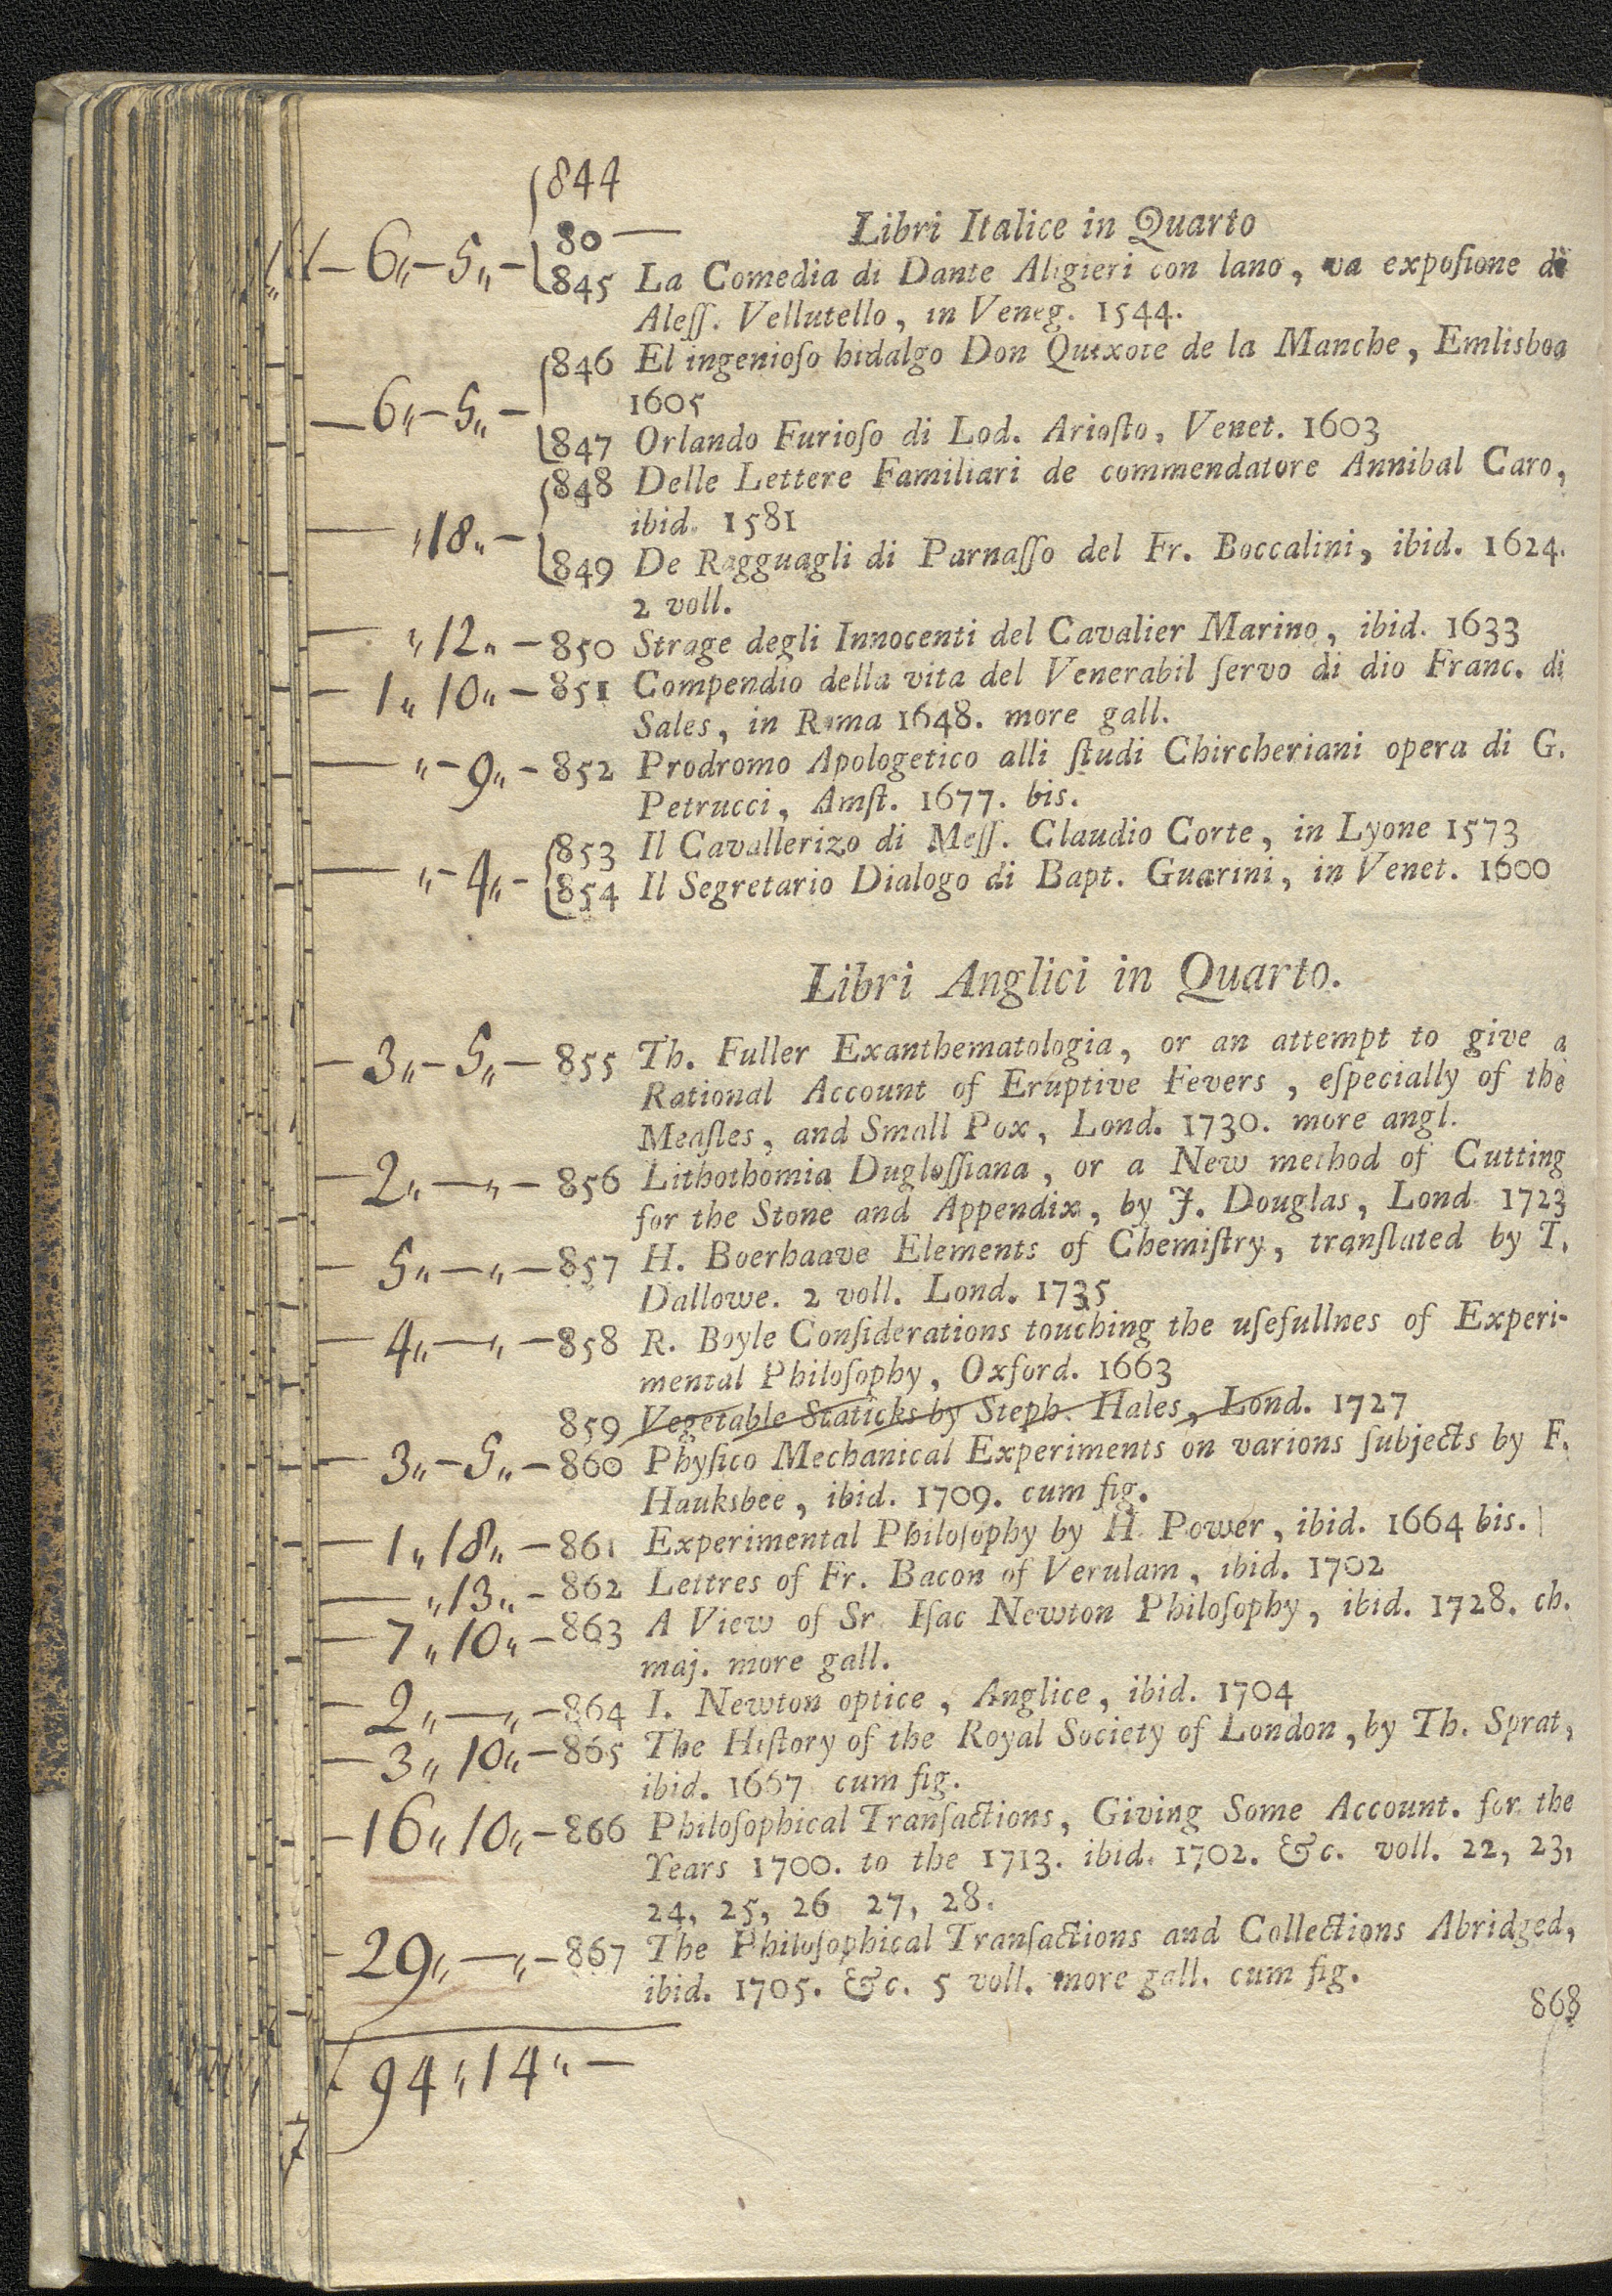 844
80 —
Libri Italice in Quarto
6 „ – 5 „ – 845 La Comedia di Dante Aligieri con lano, va exposione di
Aleſſ. Vellutello, in Veneg. 1544.
846 El ingenioſo hidalgo Don Quixote de la Manche, Emlisboa
— 6 „ – 5 „ –
1605
847 Orlando Furioſo di Lod. Arioſto, Venet. 1603
848 Delle Lettere Familiari de commendatore Annibal Caro,
— „ 18 „ –
ibid. 1581
849 De Ragguagli di Parnaſſo del Fr. Boccalini, ibid. 1624.
2 voll.
— „ 12 „ – 850 Strage degli Innocenti del Cavalier Marino, ibid. 1633
– 1 „ 10 „ – 851 Compendio della vita del Venerabil ſervo di dio Franc. di
Sales, in Roma 1648. more gall.
— „ – 9 „ – 852 Prodromo Apologetico alli ſtudi Chircheriani opera di G.
Petrucci, Amſt. 1677. bis.
853 Il Cavallerizo di Meſſ. Claudio Corte, in Lyone 1573
— „ – 4 „ –
854 Il Segretario Dialogo di Bapt. Guarini, in Venet. 1600
Libri Anglici in Quarto.
– 3 „ – 5 „ – 855 Th. Fuller Exanthematologia, or an attempt to give a
Rational Account of Eruptive Fevers, eſpecially of the
Meaſles, and Small Pox, Lond. 1730. more angl.
– 2 „ — „ – 856 Lithothomia Dugloſſiana, or a New method of Cutting
for the Stone and Appendix, by J. Douglas, Lond 1723
– 5 „ — „ – 857 H. Boerhaave Elements of Chemiſtry, tranſlated by T.
Dallowe. 2 voll. Lond. 1735
– 4 „ — „ – 858 R. Boyle Conſiderations touching the uſefullnes of Experi-
mental Philoſophy, Oxford. 1663
859 Vegetable Staticks by Steph. Hales, Lond. 1727
– 3 „ – 5 „ – 860 Phyſico Mechanical Experiments on varions ſubjects by F.
Hauksbee, ibid. 1709. cum fig.
– 1 „ 18 „ – 861 Experimental Philoſophy by H. Power, ibid. 1664 bis.
— „ 13 „ – 862 Lettres of Fr. Bacon of Verulam, ibid. 1702
– 7 „ 10 „ – 863 A View of Sr. Iſac Newton Philoſophy, ibid. 1728. ch.
maj. more gall.
– 2 „ — „ – 864 I. Newton optice, Anglice, ibid. 1704
– 3 „ 10 „ – 865 The Hiſtory of the Royal Society of London, by Th. Sprat,
ibid. 1667 cum fig.
– 16 „ 10 „ – 866 Philoſophical Tranſactions, Giving Some Account. for the
Years 1700. to the 1713. ibid. 1702. &c. voll. 22, 23,
24, 25, 26 27, 28.
– 29 „ — „ – 867 The Philoſophical Tranſactions and Collections Abridged,
ibid. 1705. &c. 5 voll. more gall. cum fig.
868
94 „ 14 „ –